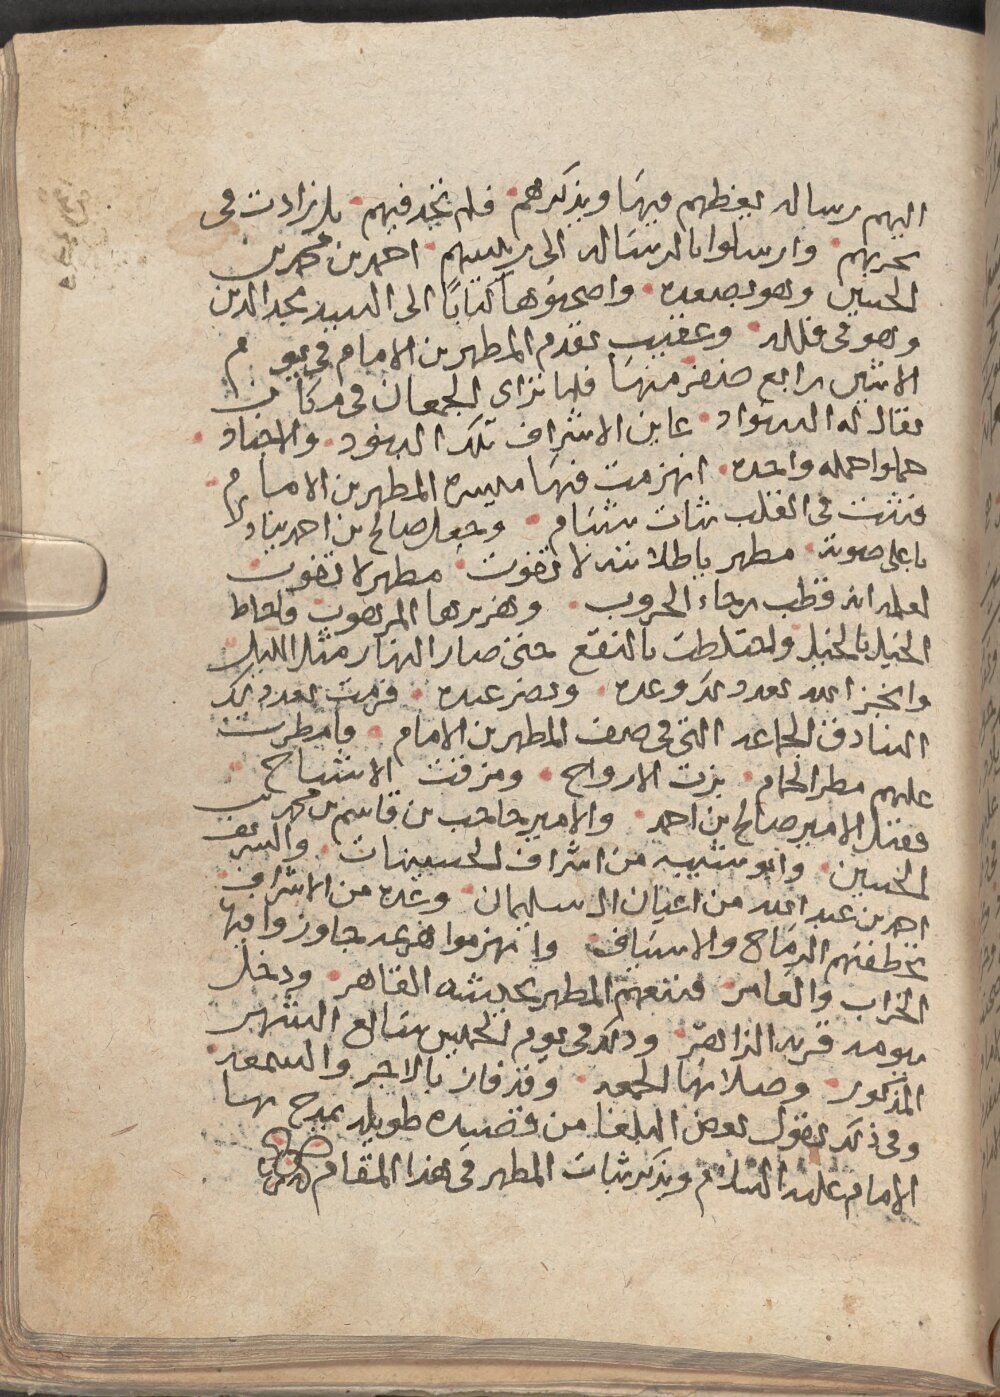 اليهم رساله يعظهم فيها ويذكرهم فلم تجد فيهم بل زادت في
حربهم وارسلوا بالرساله الى رييسهم احمد بن محمد بن
الحسين وهو بصعده واصحبوها كتابا الى السيد مجد الدين
وهو في فلله وعقيب تقدم المطهر بن الامام في يوم
الاثنين رابع صفر منها فلما تراى الجمعان في مكان
يقال له السواد عاين الاشراف تلك البنود والاجناد
حملوا حمله واحده انهزمت فيها ميسره المطهر بن الامام
فثبت في القلب ثبات شبام وجعل صالح بن احمد ينادي
باعلى صوته مطهر يا طلابته لا تفوت مطهر لا تفوت
لعلمه انه قطب رحاء الحروب وهزبرها المرهوب واحاط
الخيل بالخيل واختلطت بالنقع حتى صار النهار مثل الليل
وانجز الله بعد ذلك وعده ونصر عبده فرمت بعد ذلك
البنادق الجماعه التي في صف المطهر بن الامام وامطرت
عليهم مطر الحمام بزت الارواح ومزقت الاشباح
فقتل الامير صالح بن احمد والامير حاجب بن قاسم بن محمد بن
الحسين وابو شيبه من اشراف الحسينات والشريف
احمد بن عبد الله من اعيان ال سليمان وعده من الاشراف
تخطفتهم الرماح والاسياف وانهزموا هزيمه جاوزوا فيها
الخراب والعامر فتبعهم المطهر بجيشه القاهر ودخل
يومه قريه الزاهر وذلك في يوم الخميس سابع الشهر
المذكور وصلا بها الجمعه وقد فاز بالاجر والسمعه
وفي ذلك يقول بعض البلغا من قصيده طويله يمدح بها
الامام عليه السلام ويذكر ثبات المطهر في هذا المقام